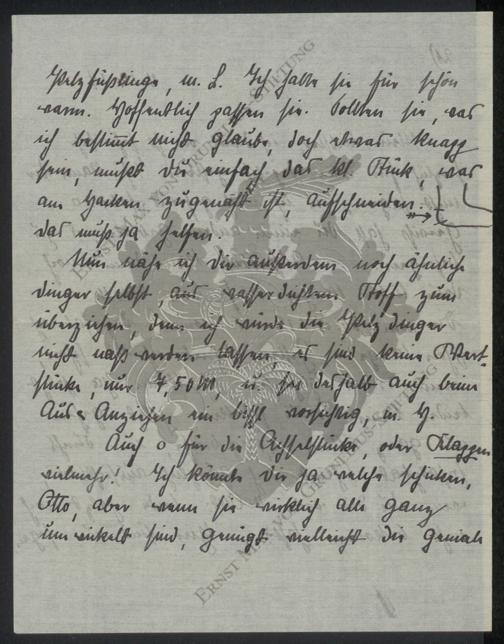 Pelzfüßlinge, m. L. Ich halte sie für schön
warm. Hoffentlich passen sie. Sollten sie, was
ich bestimmt nicht glaube, doch etwas knapp
sein, mußt du einfach das kl. Stück, was
am Hacken zugenäht ist, aufschneiden.
das muß ja helfen.
Nun nähe ich dir außerdem noch ähnliche
dinger selbst, aus wasserdichtem Stoff zum
überziehen, denn ich würde die Pelzdinger
nicht naß werden lassen, es sind keine Wert-
stücke, nur 7,50 M, u. sei deshalb auch beim
Aus u Anziehen ein bißl vorsichtig, m. H.
Auch o für die Achselstücke, oder Klappen
vielmehr! Ich könnte dir ja welche schicken,
Otto, aber wenn sie wirklich alle ganz
umwickelt sind, genügt vielleicht die geniale
ERNST MAX VON GRUNELIUS-STIFTUNG